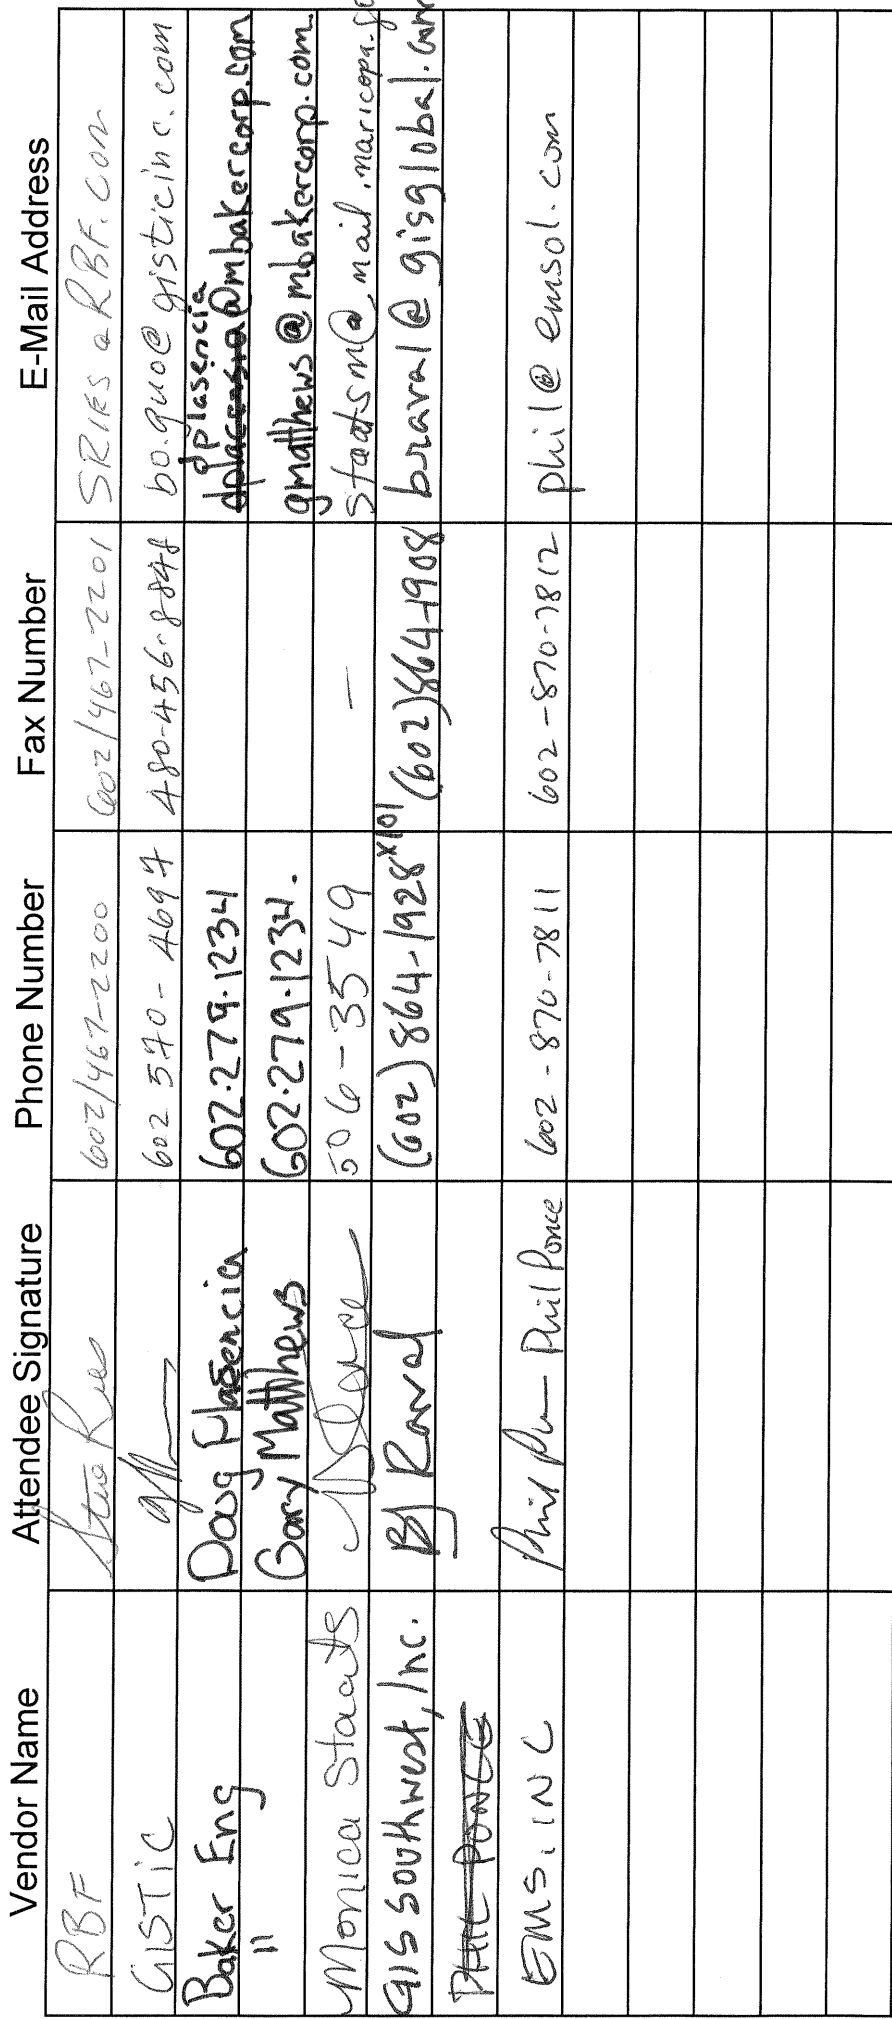 Vendor Name Attendee Signature Phone Number Fax Number E-Mail Address
RBF Steve Ries 602/467-2200 602/467-2201 SRIES@RBF.COM
GISTIC 602 570-4697 480-456-8848 bo.guo@gisticinc.com
Baker Eng Doug Plasencia 602.279.1234 dplasencia @mbakercorp.com
" Gary Matthews 602.279.1234. gmatthews@mbakercorp.com.
Monica Staats 506-3549 - staatsm@mail.maricopa.
GIS Southwest, Inc. BJ Raval (602)864-1928 x101 (602)864-1908 braval@gisglobal.com
PHIL PONCE
EMS, INC Phil Ponce 602-870-7811 602-870-7812 phil@emsol.com